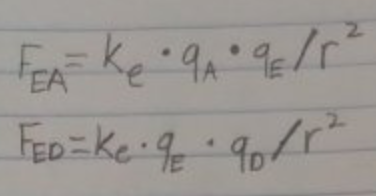 F_EA = k_e · q_A · q_E / r²
F_ED = k_e · q_E · q_D / r²